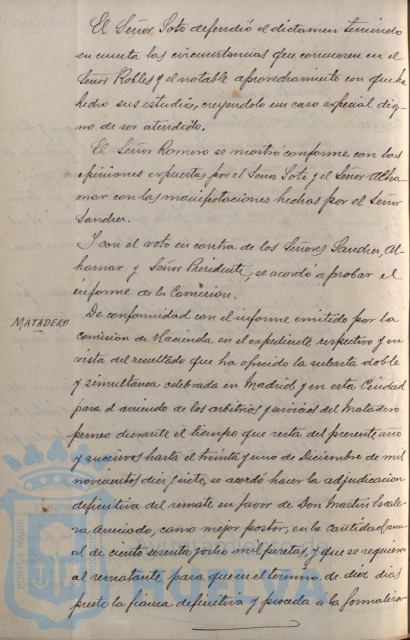 El Señor Soto defendió el dictamen teniendo
en cuenta las circunstancias que concurren en el
Señor Robles y el notable aprovechamiento con que ha
hecho sus estudios, creyéndolo un caso especial dig-
no de ser atendido.
El Señor Romero se mostró conforme con las
opiniones expuestas por el Señor Soto y el Señor Alha-
mar con las manifestaciones hechas por el Señor
Sancher.
Y con el voto en contra de los Señores Sancher, Al-
hamar y Señor Presidente, se acordó aprobar el
informe de la Comision.
MATADERO
De conformidad con el informe emitido por la
Comisión de Hacienda en el expediente respectivo y en
vista del resultado que ha ofrecido la subasta doble
y simultanea celebrada en Madrid y en esta Ciudad
para el arriendo de los arbitrios y servicios del Matadero
durante el tiempo que resta del presente año
y sucesivos hasta el treinta y uno de Diciembre de mil
novecientos diez y siete, se acordó hacer la adjudicacion
definitiva del remate en favor de Don Martín
como mejor postor, en la cantidad anu-
al de ciento sesenta y ocho mil pesetas, y que se requiera
al rematante para que en el termino de diez dias
preste la fianza definitiva y proceda á la formaliza-